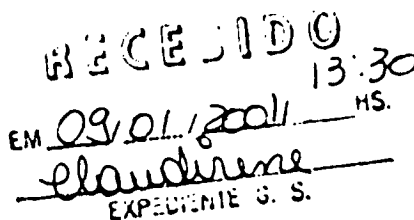 RECEBIDO
13:30
EM 09/01/2001 HS.
Claudirene
EXPEDIENTE G. S.